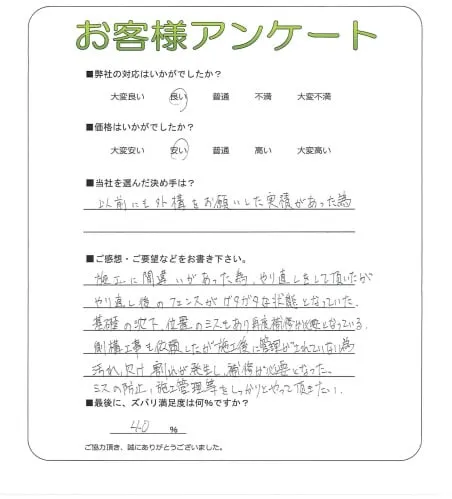 お客様アンケート
■弊社の対応はいかがでしたか？
大変良い 良い 普通 不満 大変不満
■価格はいかがでしたか？
大変安い 安い 普通 高い 大変高い
■当社を選んだ決め手は？
以前にも外構をお願いした実績があった為
■ご感想・ご要望などをお書き下さい。
施工に間違いがあった為、やり直しをして頂いたが
やり直し後のフェンスがガタガタな状態となっていた。
基礎の沈下、位置のミスもあり再度補修が必要となっている。
側構工事も依頼したが施工後に管理がされていない為
汚れ、欠け、割れが発生し、補修が必要となった。
ミスの防止、施工管理等をしっかりとやって頂きたい。
■最後に、ズバリ満足度は何%ですか？
40 %
ご協力頂き、誠にありがとうございました。